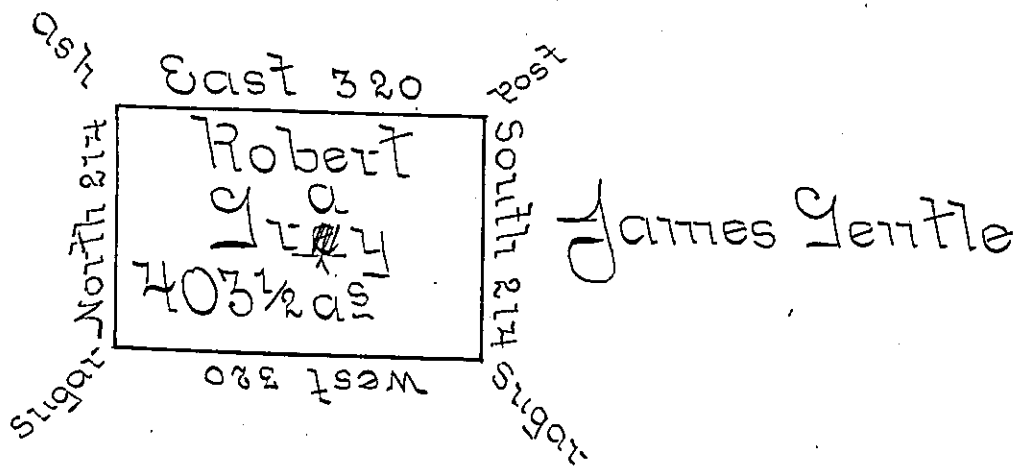 ash
East 320
post
North 214
Robert
Gray
403 1/2 as
South 214
James Gentle
West 320
sugar
sugar